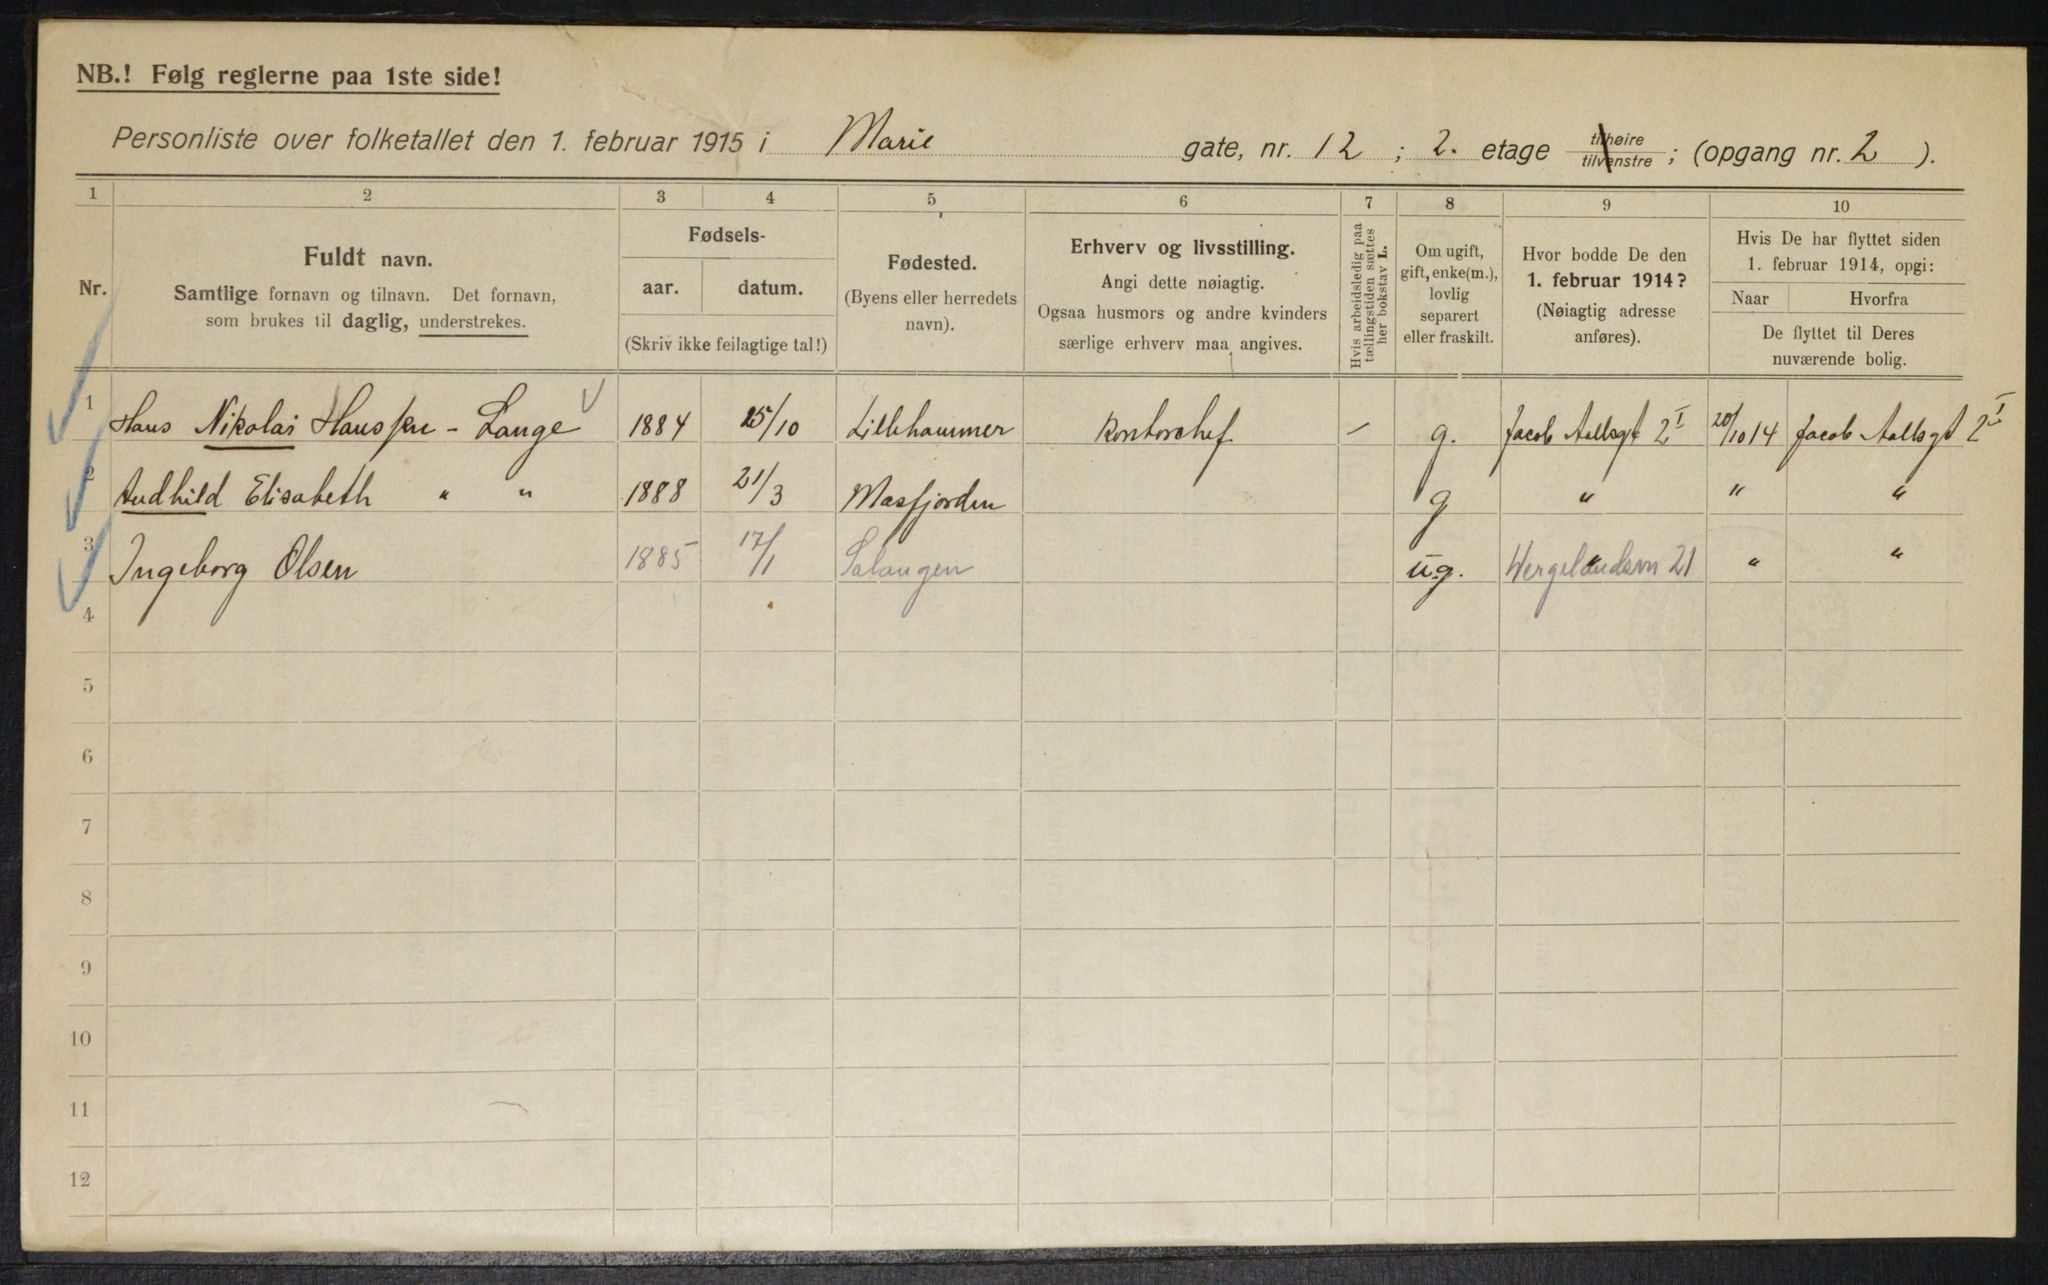 NB.! Følg reglerne paa 1ste side!
Personliste over folketallet den 1. februar 1915 i Marie gate, nr. 12 ; 2. etage tilhøire tilvenstre ; (opgang nr. 2 ).
1 2 3 4 5 6 7 8 9 10
Nr.
Fuldt navn.
Samtlige fornavn og tilnavn. Det fornavn,
som brukes til daglig, understrekes.
Fødsels-
aar. datum.
(Skriv ikke feilagtige tal!)
Fødested.
(Byens eller herredets
navn).
Erhverv og livsstilling.
Angi dette nøiagtig.
Ogsaa husmors og andre kvinders
særlige erhverv maa angives.
Hvis arbeidsledig paa
tællingstiden sættes
her bokstav L.
Om ugift,
gift, enke(m.),
lovlig
separert
eller fraskilt.
Hvor bodde De den
1. februar 1914?
(Nøiagtig adresse
anføres).
Hvis De har flyttet siden
1. februar 1914, opgi:
Naar Hvorfra
De flyttet til Deres
nuværende bolig.
1 Hans Nikolai - Lange 1884 25/10 Lillehammer Kontorchef — g. Jacob Aallsgt 2 I 20/10 14 Jacob Aallsgt 2 I
2 Audhild Elisabeth " " 1888 21/3 Masfjorden g " " "
3 Ingeborg Olsen 1885 17/1 Salangen ug. Wergelandsvn 21 " "
4
5
6
7
8
9
10
11
12